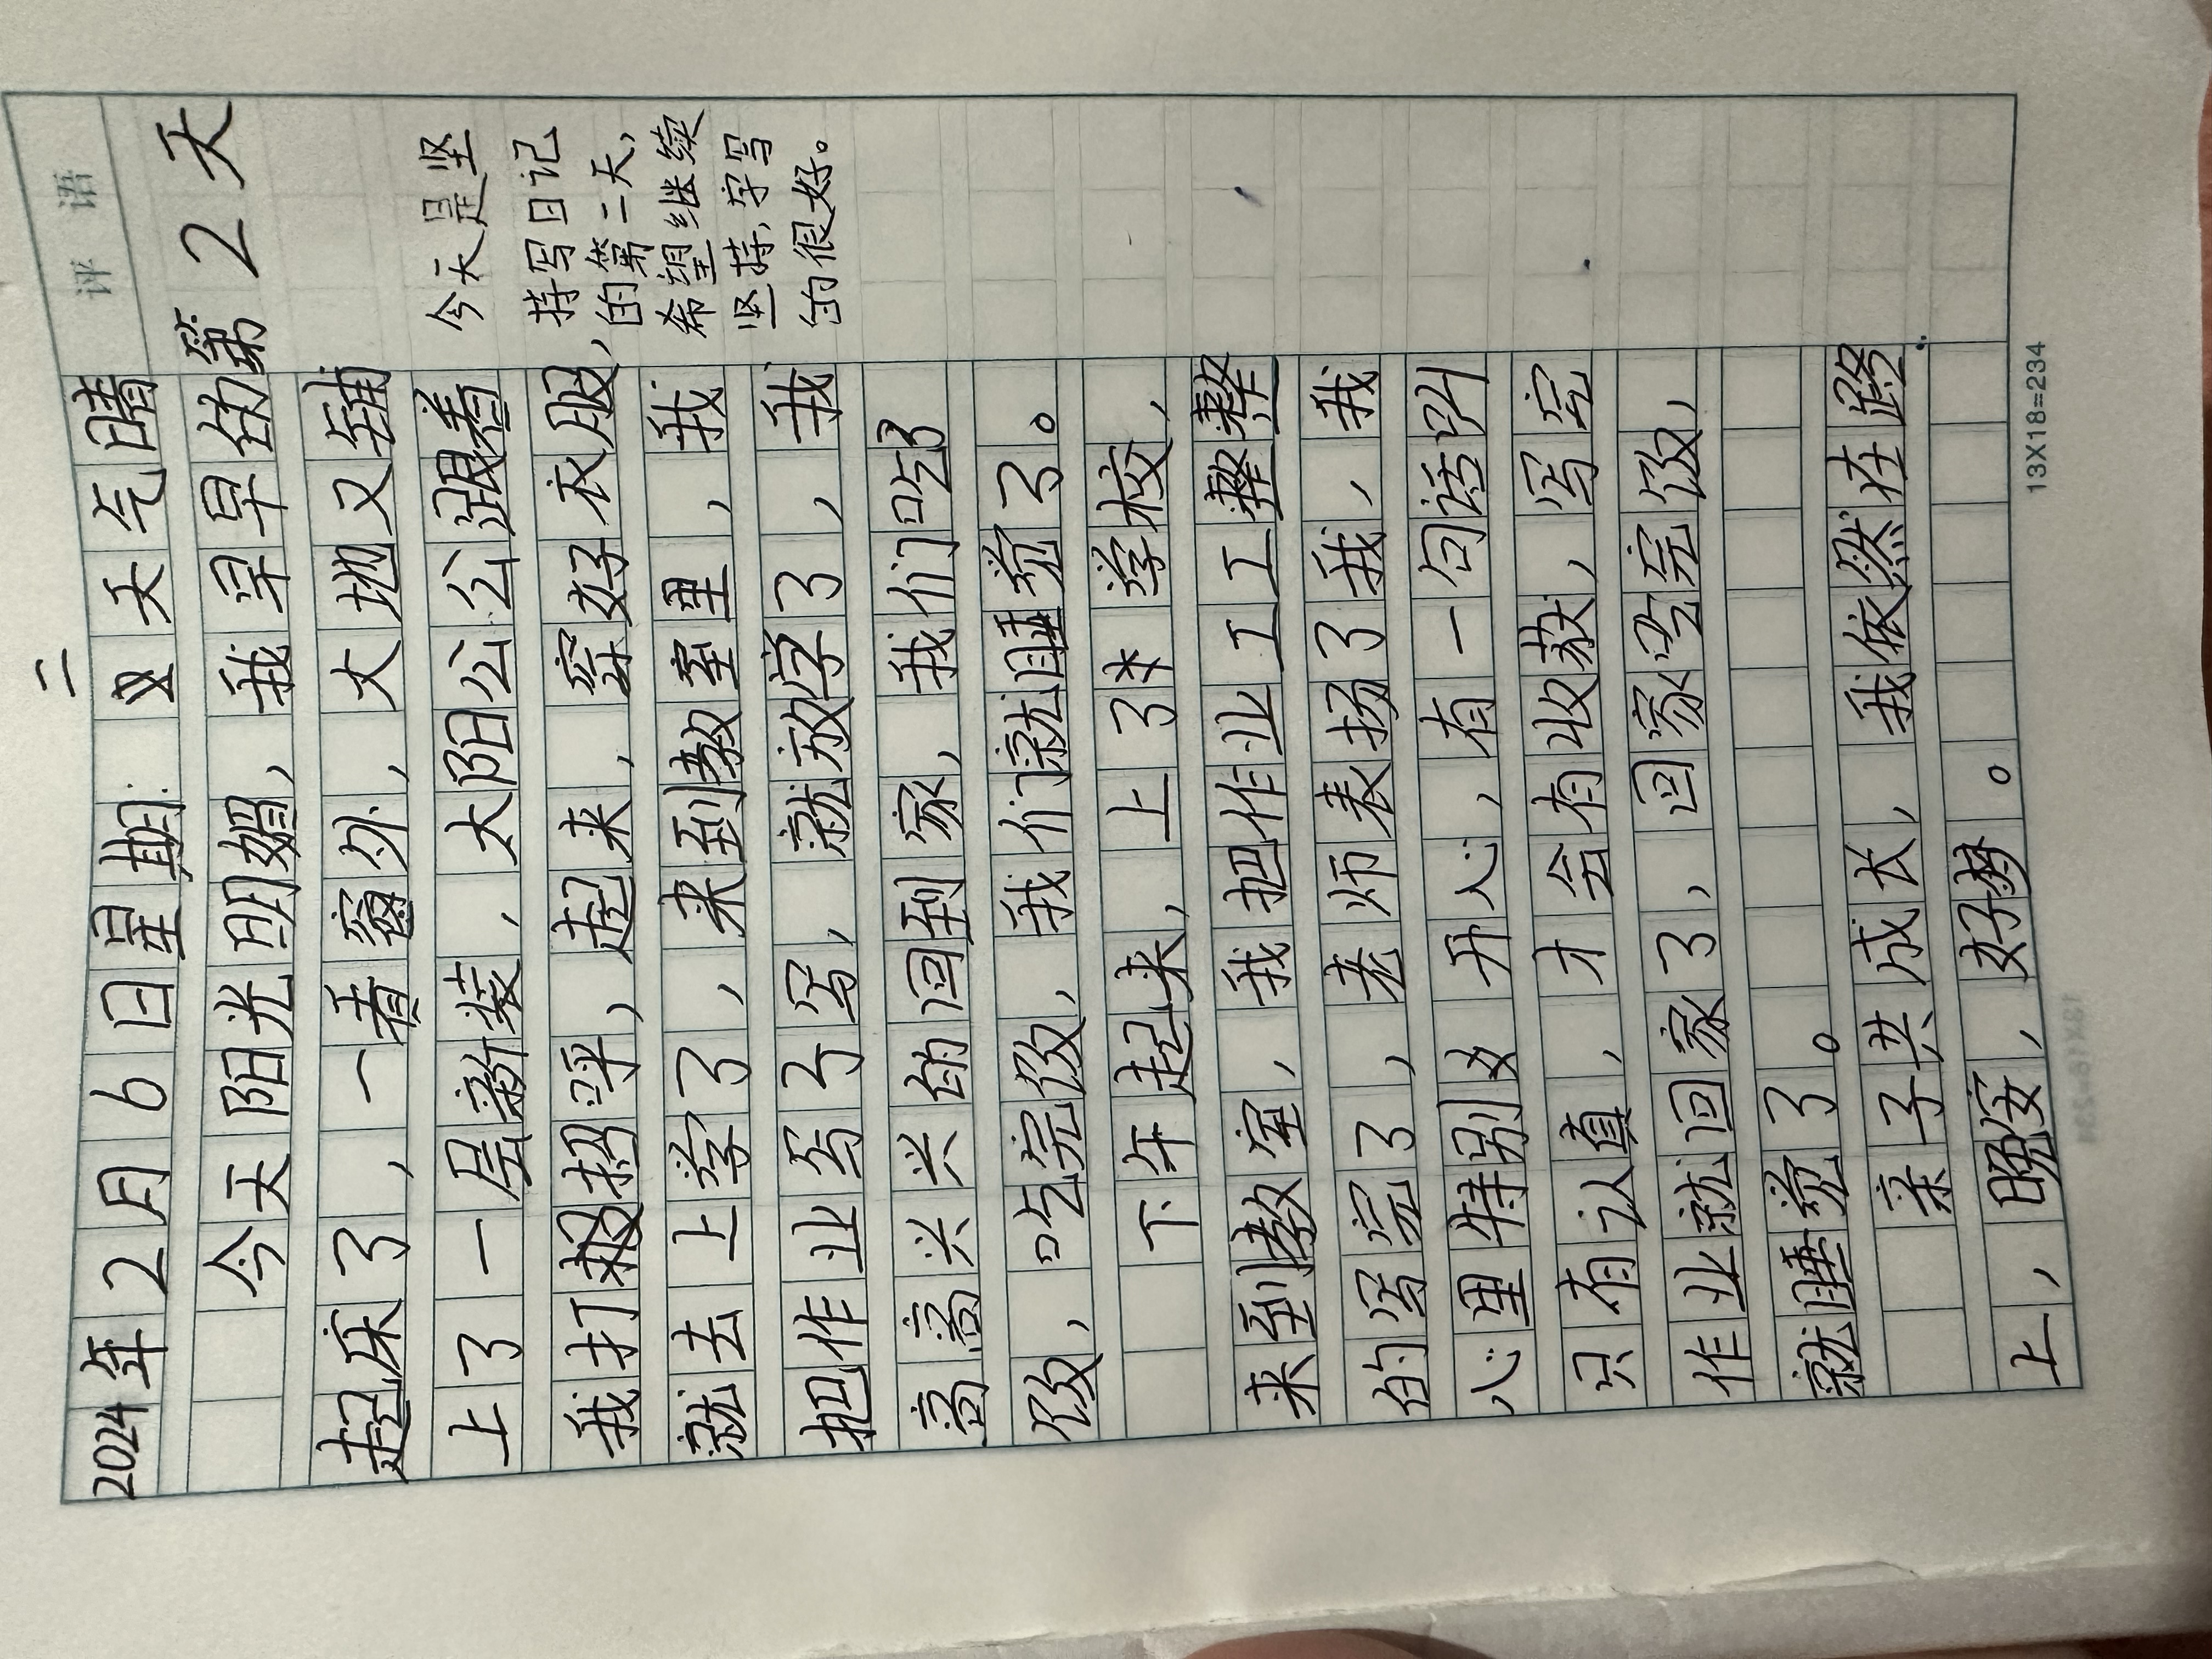 评 语
第2天
2024年2月6日星期二天气晴
今天阳光明媚，我早早的
起床了，一看窗外，大地又铺
上了一层新装，太阳公公跟着
我打招呼，起来，穿好衣服，
就去上学了，来到教室里，我
把作业写了写，就放学了，我
高高兴兴的回到家，我们吃了
饭，吃完饭，我们就睡觉了。
下午起来，上了学校，
来到教室，我把作业工工整整
的写完了，老师表扬了我，我
心里特别开心，有一句话叫
只有认真，才会有收获，写完
作业就回家了，回家吃完饭，
就睡觉了。
亲子共成长，我依然在路
上，晚安，好梦。
今天是坚
持写日记
的第二天，
希望继续
坚持，字写
的很好。
13X18=234